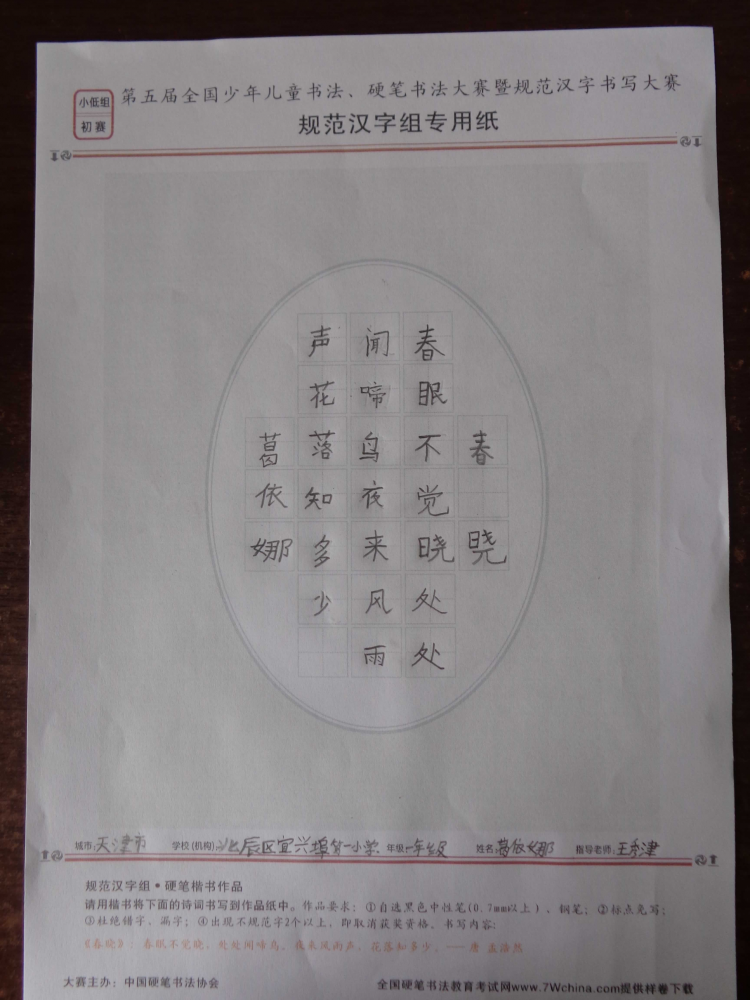 小低组
初赛
第五届全国少年儿童书法、硬笔书法大赛暨规范汉字书写大赛
规范汉字组专用纸
春晓
春眠不觉晓处处
闻啼鸟夜来风雨
声花落知多少
葛依娜
城市:天津市 学校(机构):北辰区宜兴埠第一小学 年级:一年级 姓名:葛依娜 指导老师:王秀津
规范汉字组·硬笔楷书作品
请用楷书将下面的诗词书写到作品纸中。作品要求:①自选黑色中性笔(0.7mm以上)、钢笔;②标点免写;
③杜绝错字、漏字;④出现不规范字2个以上,即取消获奖资格。书写内容:
《春晓》:春眠不觉晓,处处闻啼鸟。夜来风雨声,花落知多少。——唐 孟浩然
大赛主办:中国硬笔书法协会
全国硬笔书法教育考试网www.7Wchina.com提供样卷下载